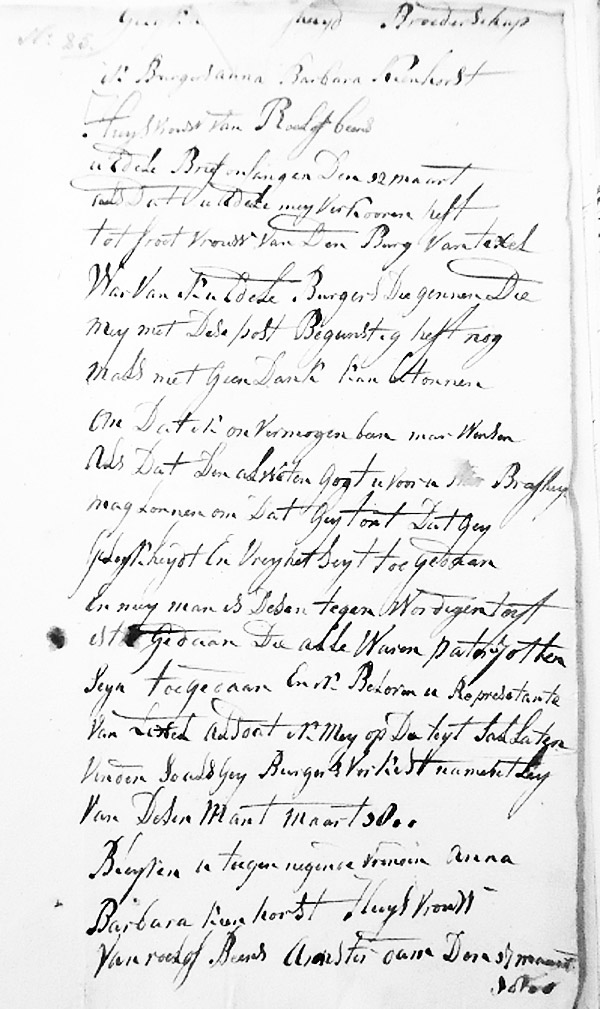 No: 85.
heyd Broederschap
ik Burgers anna Barbara Kienhorst
Huysvrouw van Roelof beens
u Edele Brief onfangen Den 12 maart
als Dat u Edele mey verkooren heft
tot froet vrouw van Den Burg van texel
Waar van ik u Edele Burgers Die gennen Die
mey met Dese post Begunstig heft nog
maals met geen Dank kan betonnen
om Dat ik onvermogen ben maar Wensen
Als Dat Den alweten gogt u voor u
mag Loonnen om Dat Gey tont Dat gey
geleykheyt En Vreyheit seyt toe gedaan
En mey man is Desen tegen Wordigen teyt
ist Gedaan Die alle Waren patrijotten
seyn toegedaan En ik Beloven u Representante
van texel als dat ik mey op De teyt sal Laten
vinden so als Gey Burgers verkiest namentley
van Desen Mant maart 1800
Bleyven u toegenegende vrindin anna
Barbara kienhorst Huysvrouw
van roelof Beens Amsterdam Den 17 maart
1800